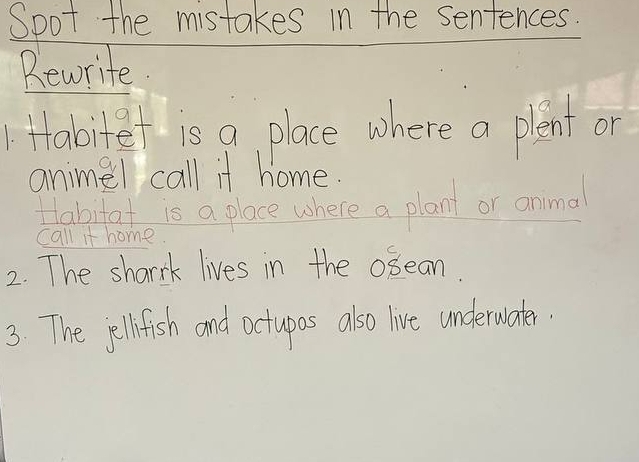 Spot the mistakes in the sentences.
Rewrite.
1. Habitet is a place where a plent or
animel call it home.
Habitat is a place where a plant or animal
call it home.
2. The sharrk lives in the osean.
3. The jellifish and octupos also live underwater.